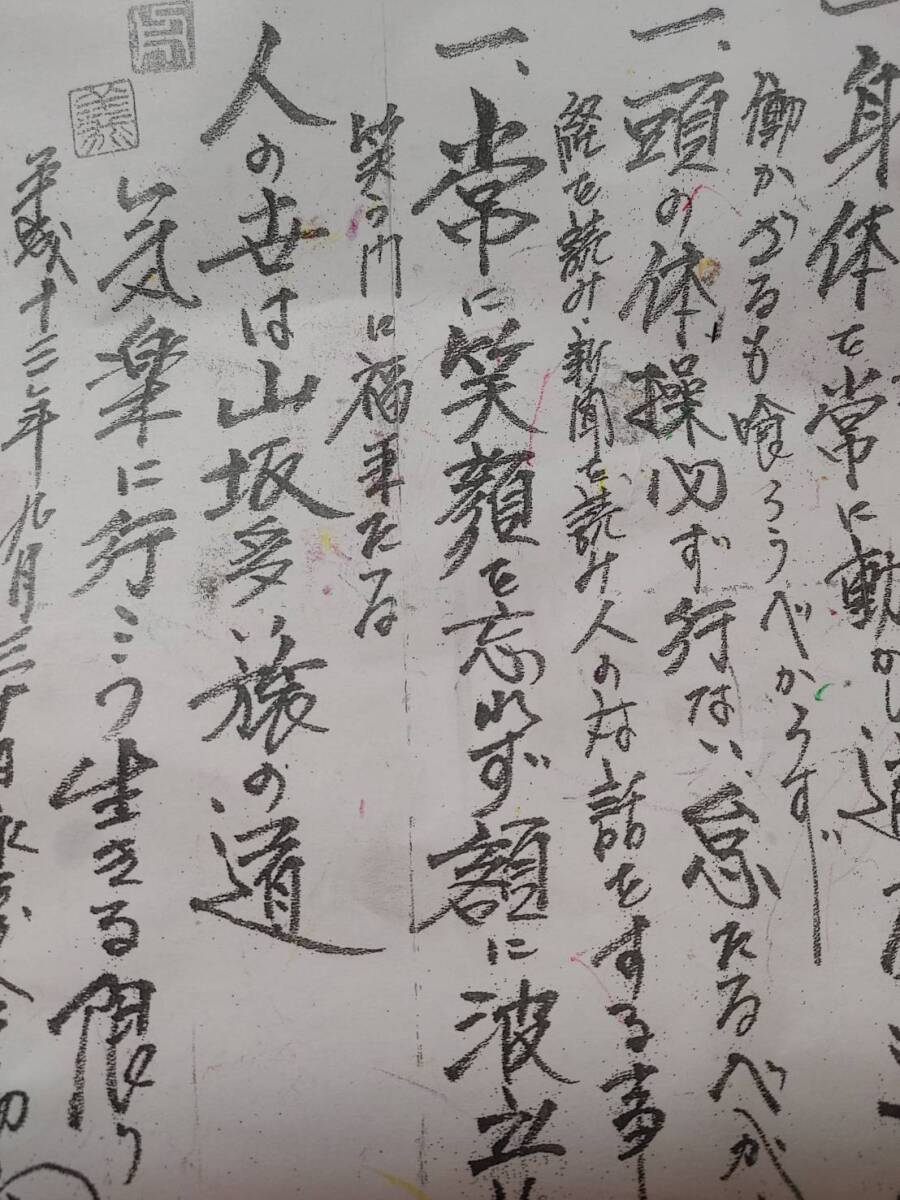 一、身体を常に動かし適
働かざるもの喰ろうべからず
一、頭の体操必ず行ない怠たるべか
経を読み、新聞を読み人の対話をする事
一、常に笑顔を忘れず額に波立
笑う門に福来たる
人の世は山坂多い旅の道
気楽に行こう生きる限り
平成十三年九月三十日